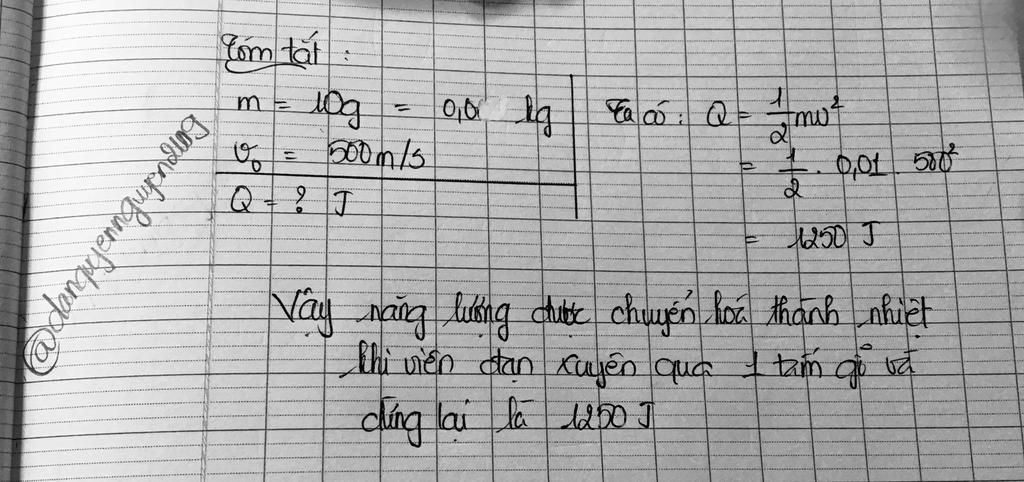 Tóm tắt :
m = 10g = 0,0 kg
v₀ = 500m/s
Q = ? J
Ta có : Q = 1/2 mv²
= 1/2 . 0,01 . 500²
= 1250 J
Vậy năng lượng được chuyển hoá thành nhiệt
khi viên đạn xuyên qua 1 tấm gỗ và
dừng lại là 1250 J